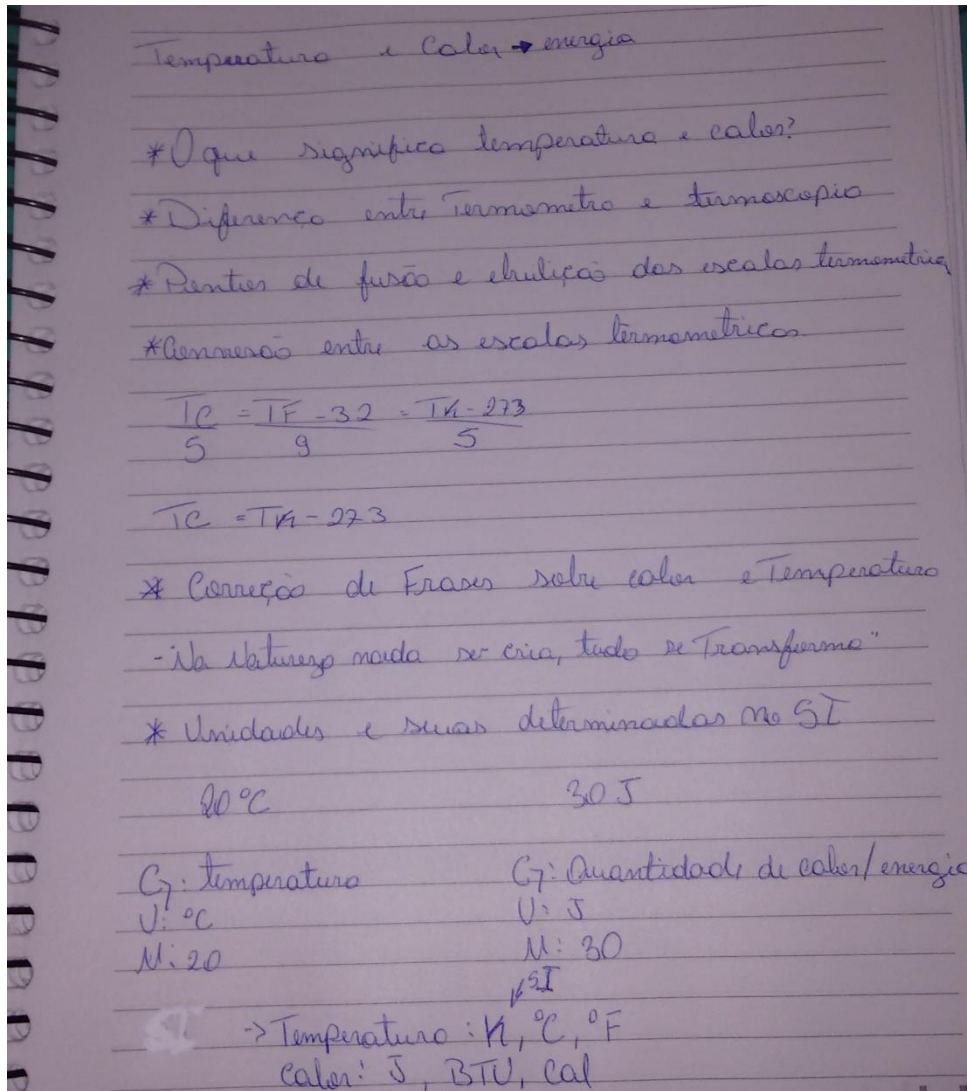 Temperatura e Calor → energia
*O que significa temperatura e calor?
*Diferença entre Termometro e termoscopio
*Pontos de fusão e ebulição das escalas termometrica
*Conversão entre as escalas termometricas
TC/5 = TF - 32/9 = TK - 273/5
TC = TK - 273
* Correção de Frases sobre calor e Temperatura
- Na Natureza nada se cria, tudo se Transforma"
* Unidades e suas determinadas no SI
20°C 30 J
G: temperatura G: Quantidade de calor/energia
U: °C U: J
N: 20 N: 30
SI
-> Temperatura: K, °C, °F
Calor: J, BTU, Cal